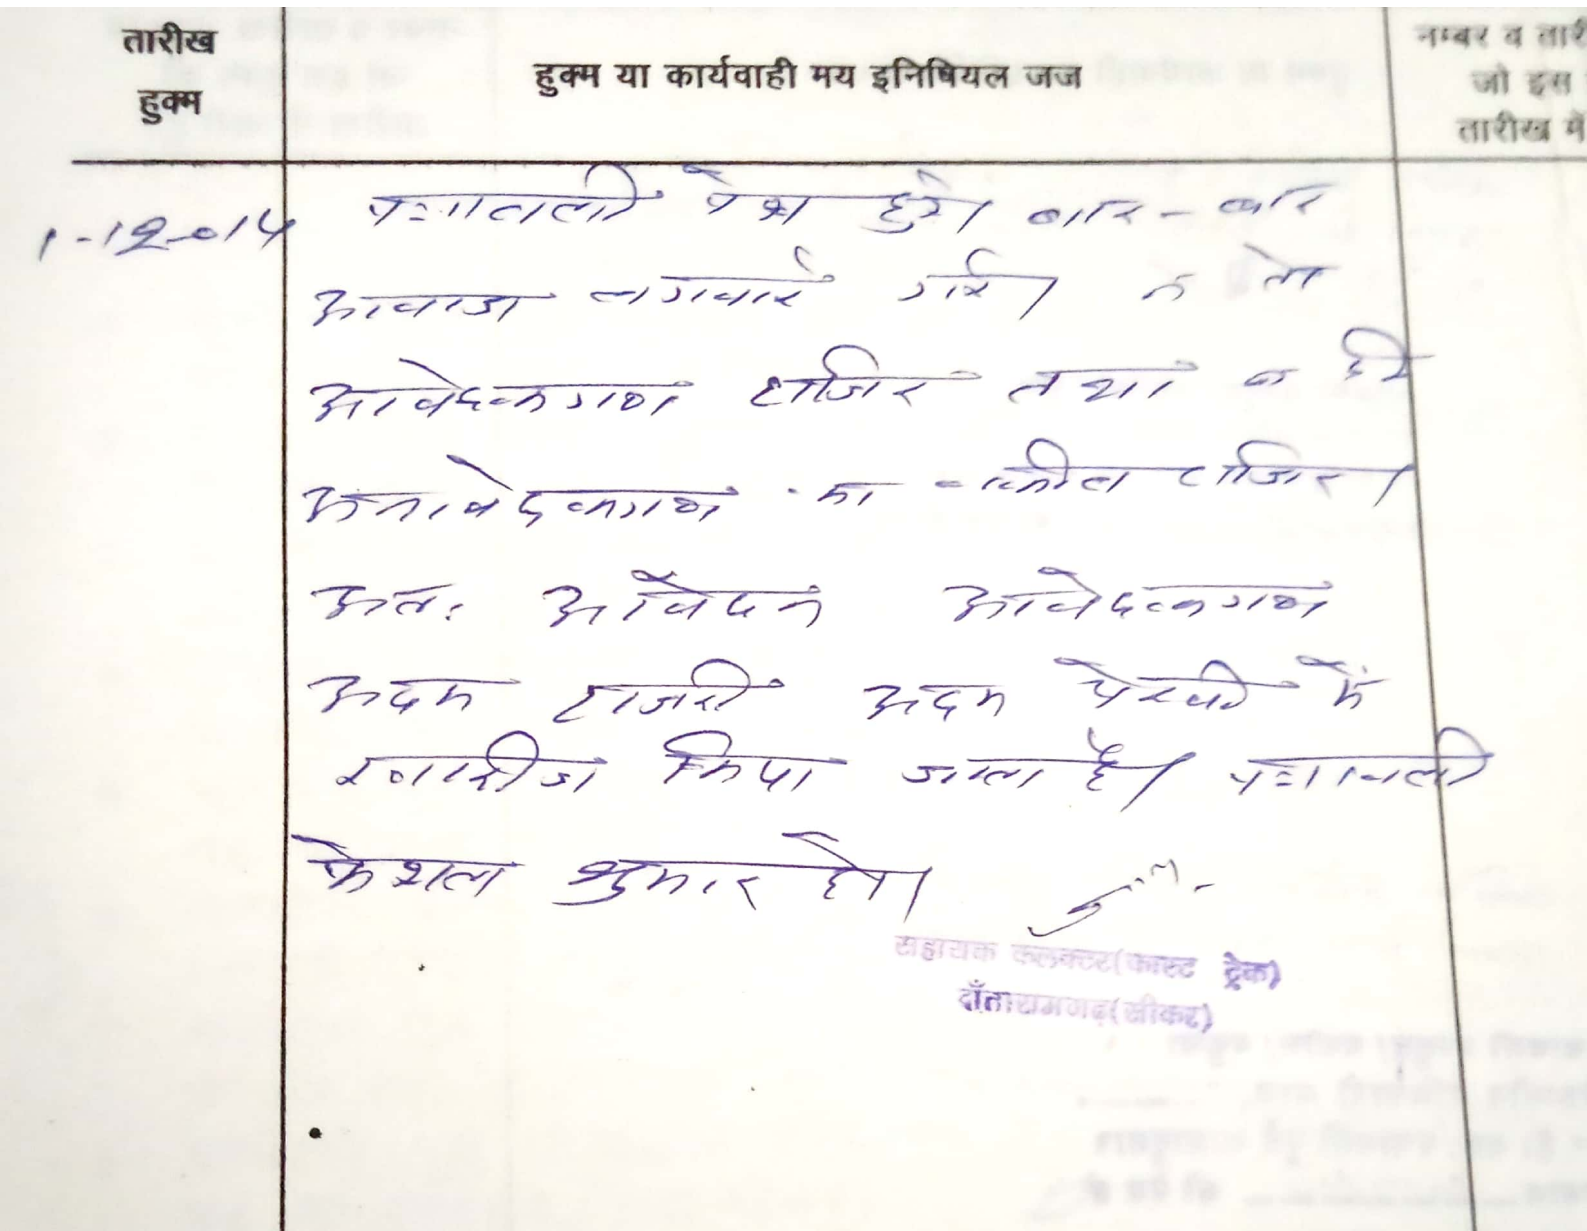 तारीख
हुक्म
हुक्म या कार्यवाही मय इनिषियल जज
नम्बर व तारी
जो इस
तारीख में
1-12-014
पत्रावली पेश हुई। बार-बार
आवाज लगवाई गई। न तो
आवेदकगण हाजिर तथा न ही
अनावेदकगण का वकील हाजिर।
अतः आवेदन आवेदकगण
अदम हाजरी अदम पैरवी में
खारीज किया जाता है। पत्रावली
फैशला शुमार हो।
सहायक कलक्टर(फास्ट ट्रेक)
दाँतारामगढ़(सीकर)